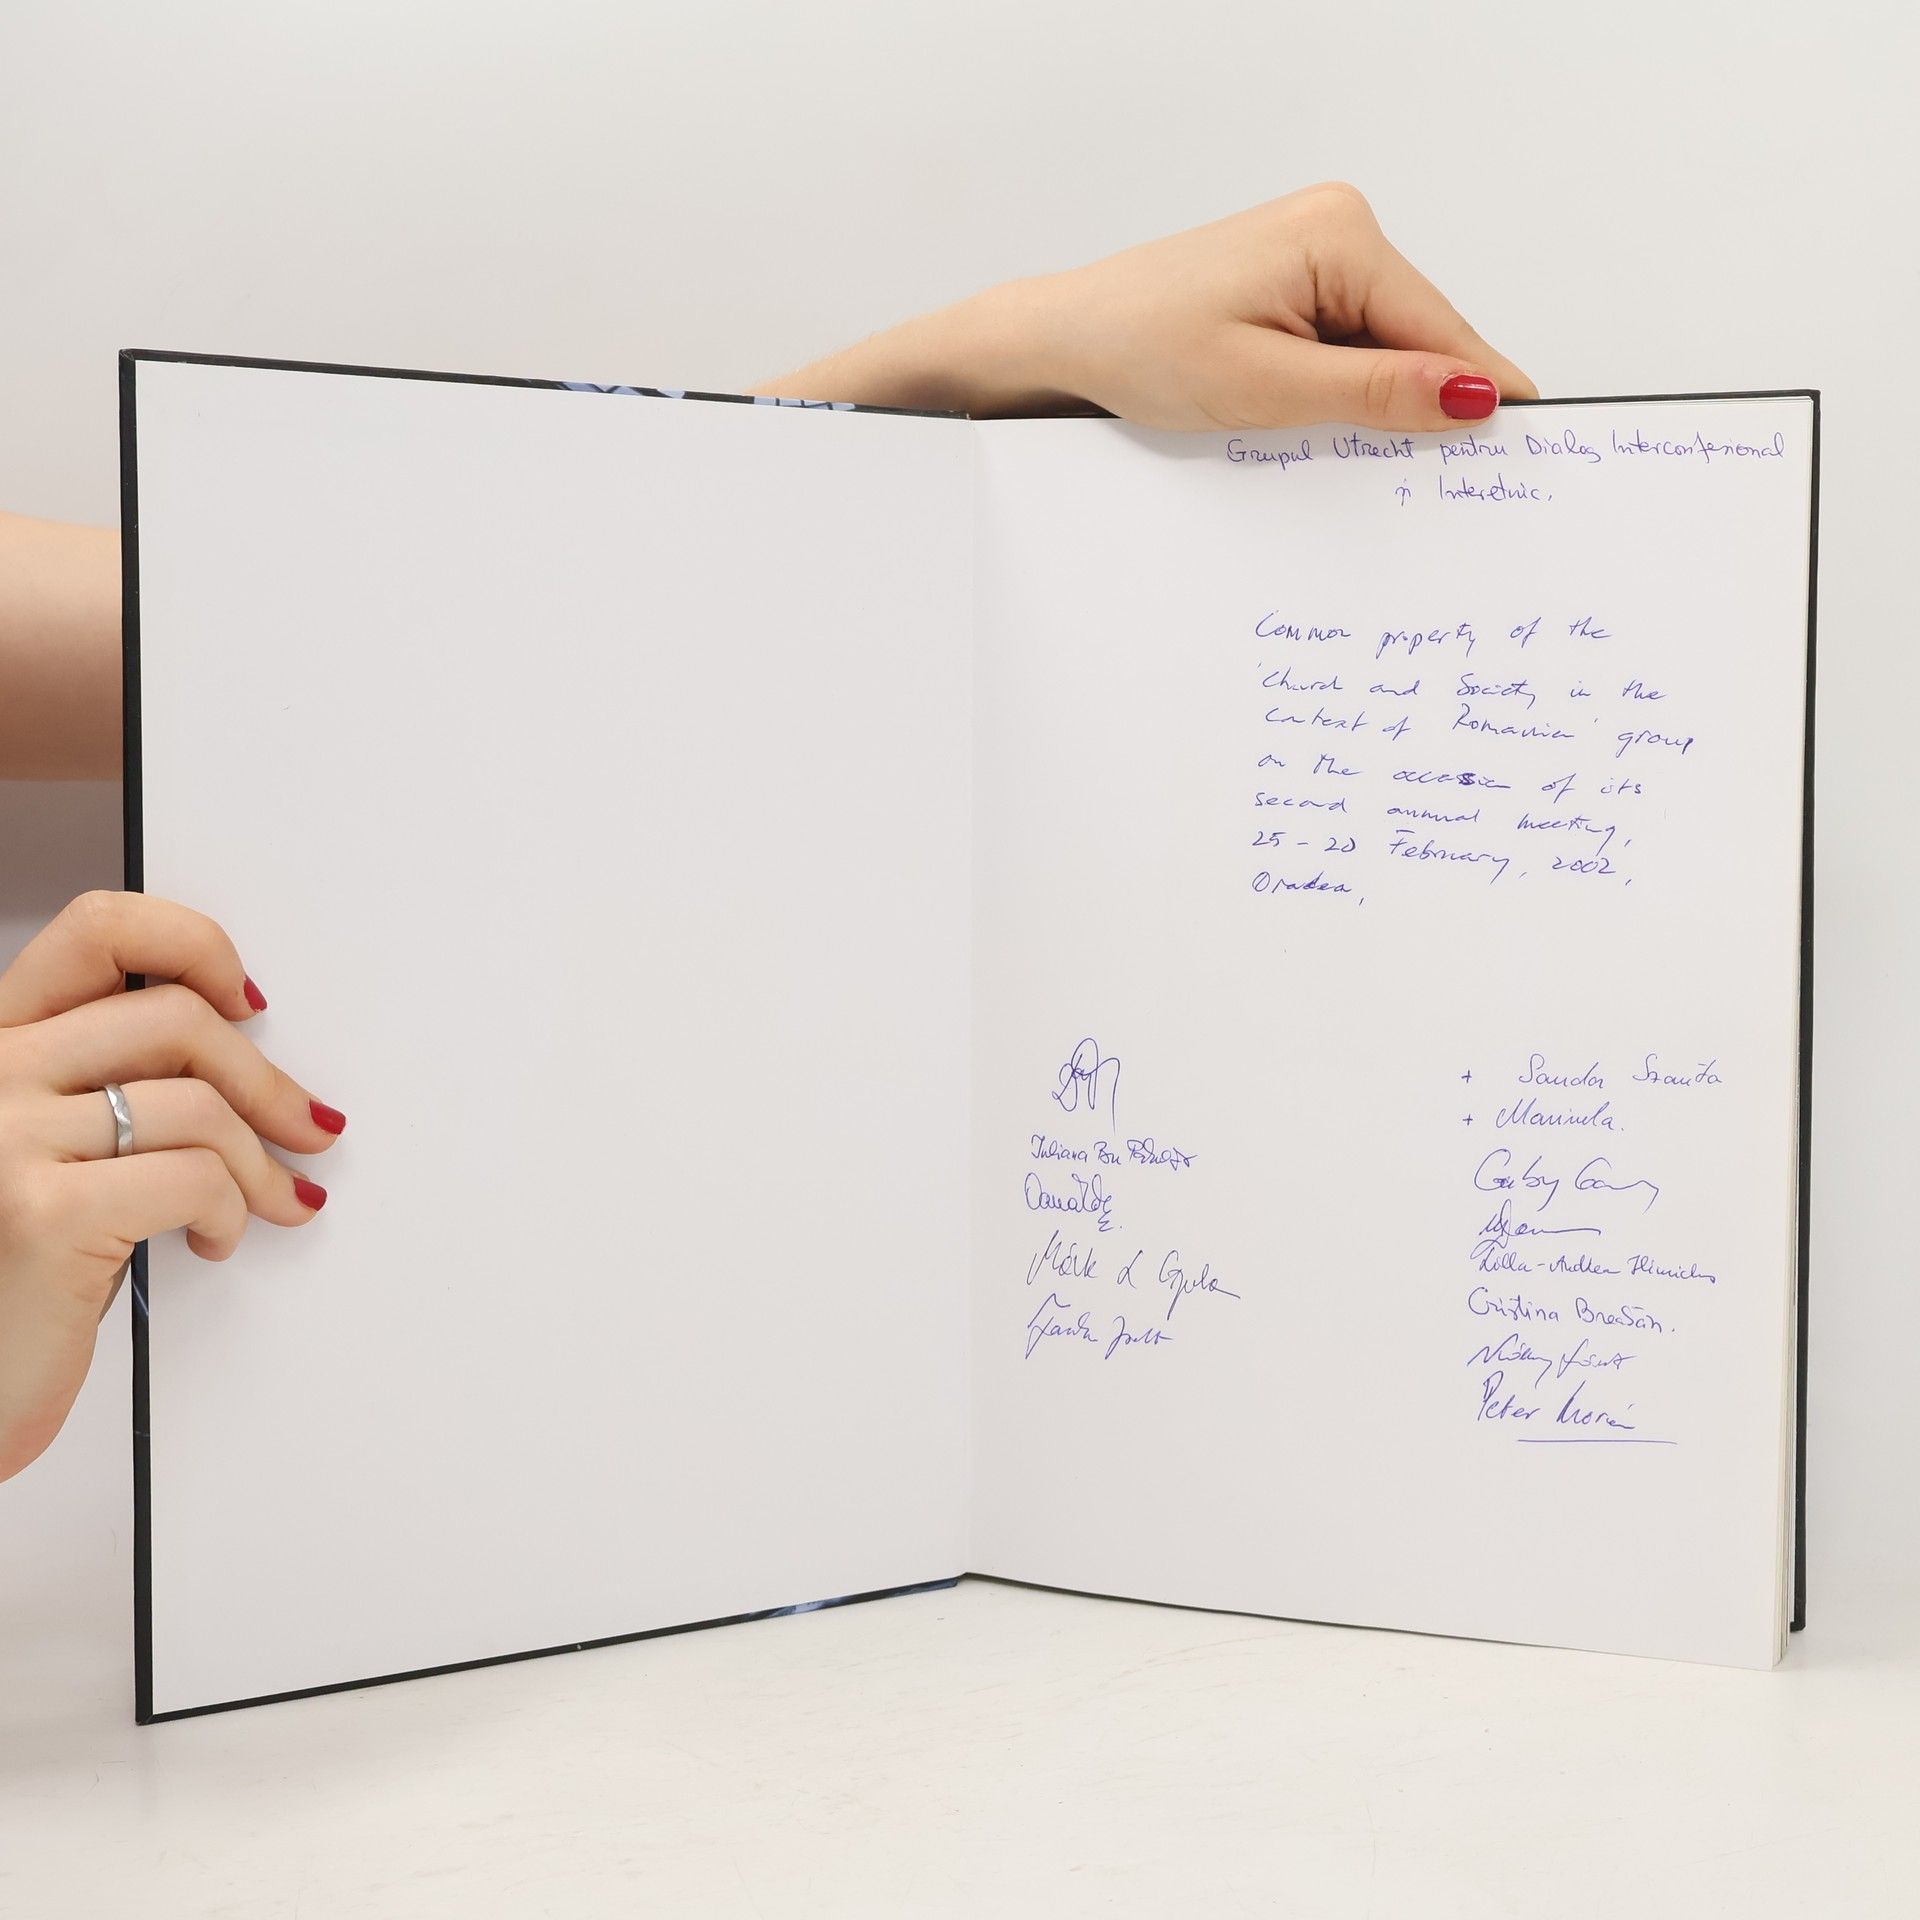 Grupul Utrecht pentru Dialog Interconfesional
și Interetnic.
Common property of the
'Church and Society in the
Context of Romania' group
on the occasion of its
second annual meeting,
25 - 28 February, 2002,
Oradea,
Iuliana
Márk L Gyula
+ Sandor
+ Marinela.
Gaby
Lilla-Andrea
Cristina
Peter